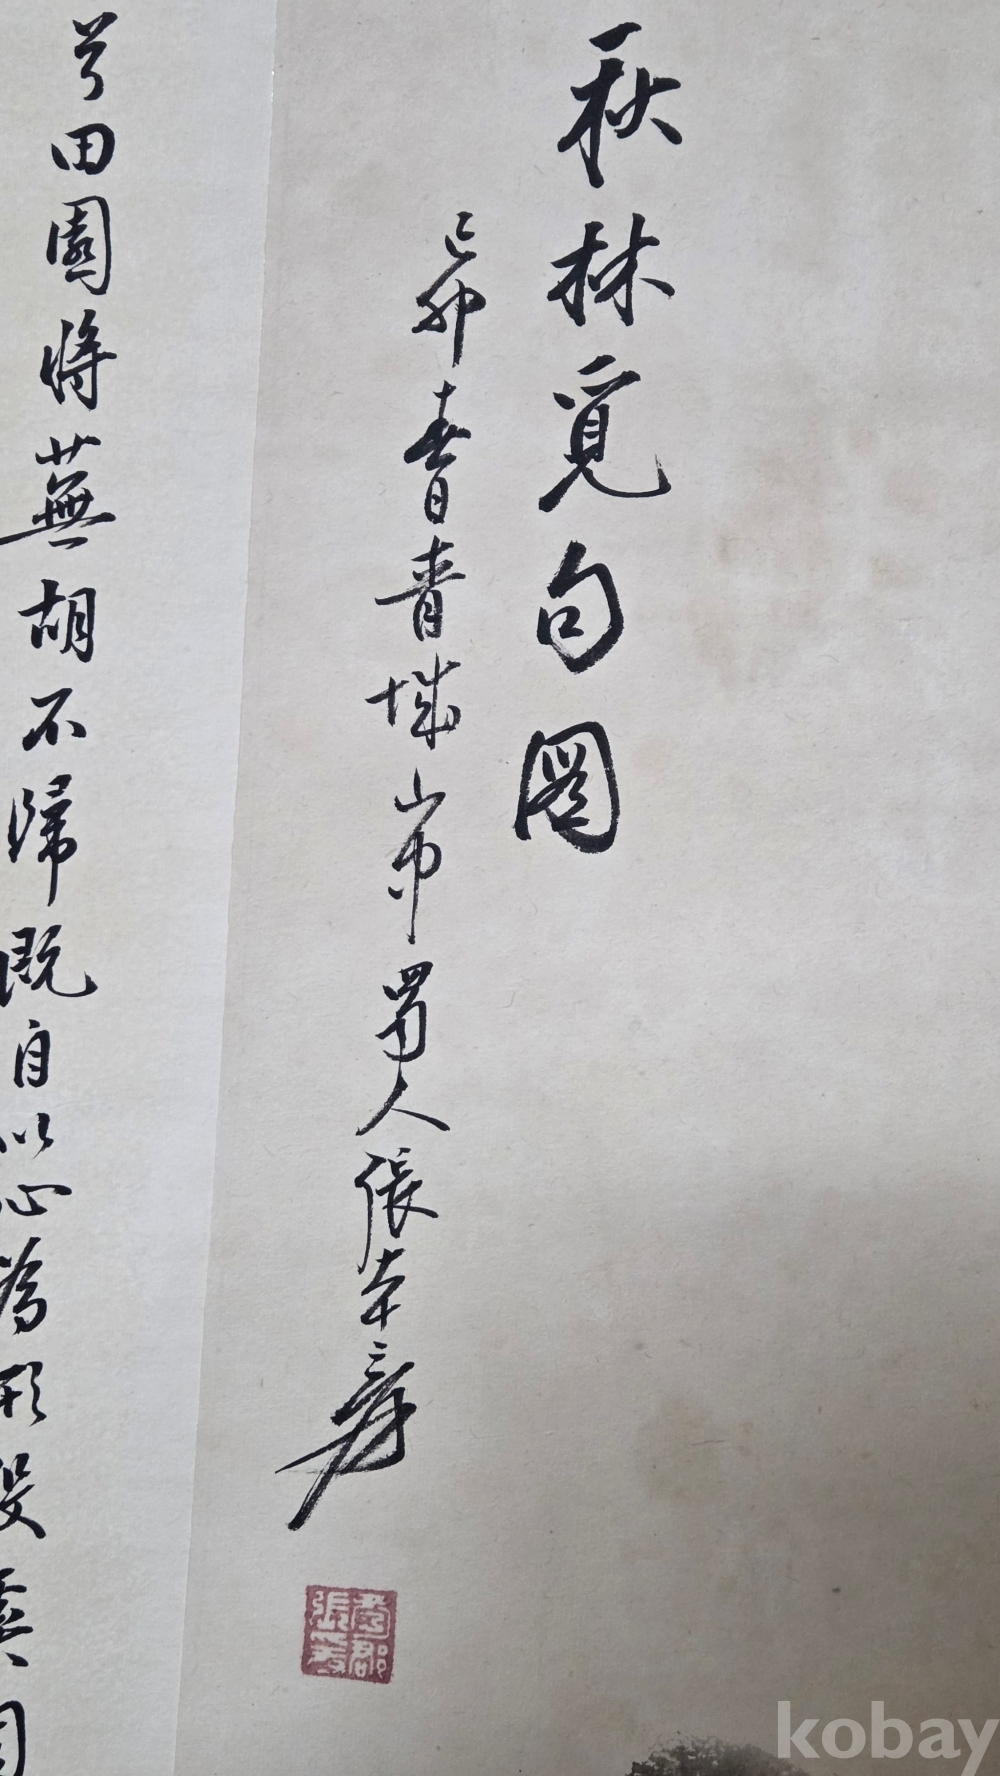 秋林覓句圖
己卯春青城山中蜀人張大千爰
蜀郡張爰
兮田園將蕪胡不歸既自以心為形役奚
kobay